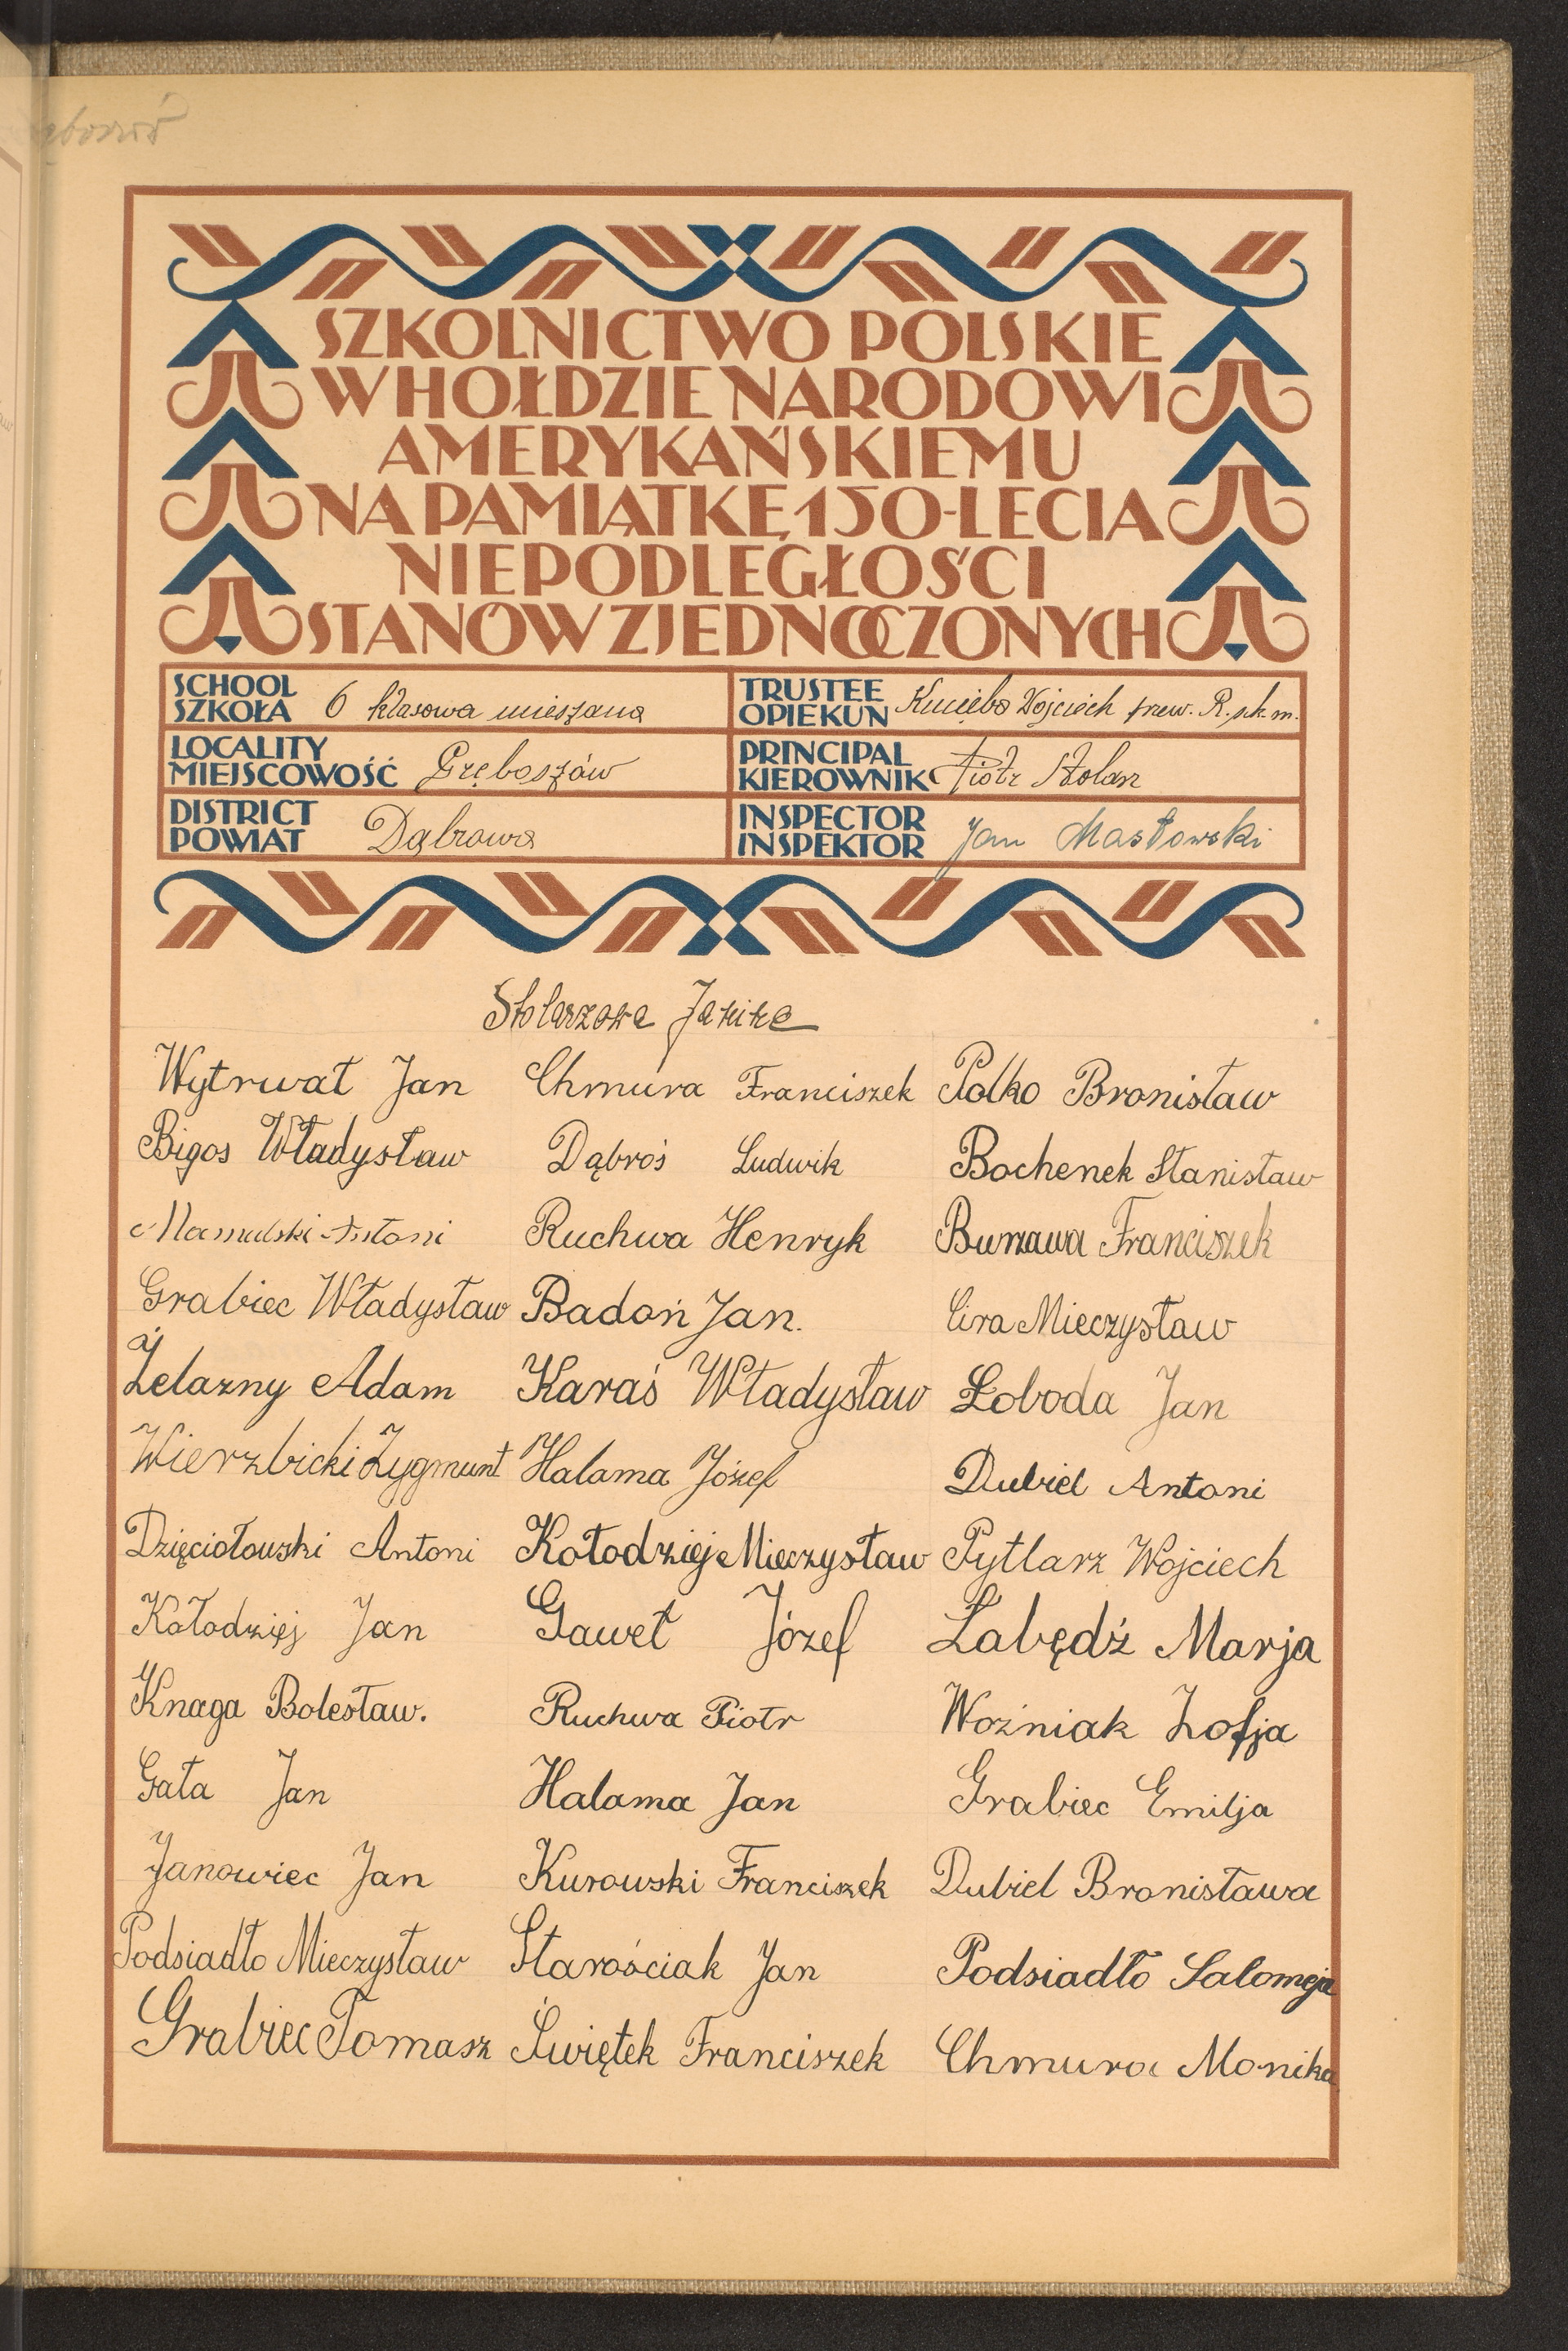 SZKOLNICTWO POLSKIE
W HOŁDZIE NARODOWI
AMERYKAŃSKIEMU
NA PAMIĄTKĘ 150-LECIA
NIEPODLEGŁOŚCI
STANÓW ZJEDNOCZONYCH
SCHOOL
SZKOŁA 6 klasowa mieszana
TRUSTEE
OPIEKUN Wojciech R. szk. m.
LOCALITY
MIEJSCOWOŚĆ Gręboszów
PRINCIPAL
KIEROWNIK Piotr Stolarz
DISTRICT
POWIAT Dąbrowa
INSPECTOR
INSPEKTOR Jan Masłowski
Stolarzowa Janina
Wytrwał Jan
Bigos Władysław
Antoni
Grabiec Władysław
Żelazny Adam
Wierzbicki Zygmunt
Dzięciołowski Antoni
Kołodziej Jan
Knaga Bolesław.
Gała Jan
Janowiec Jan
Podsiadło Mieczysław
Grabiec Tomasz
Chmura Franciszek
Dąbroś Ludwik
Ruchwa Henryk
Badoń Jan.
Karaś Władysław
Halama Józef
Kołodziej Mieczysław
Gaweł Józef
Ruchwa Piotr
Halama Jan
Kurowski Franciszek
Starościak Jan
Świętek Franciszek
Polko Bronisław
Bochenek Stanisław
Burzawa Franciszek
Cira Mieczysław
Łoboda Jan
Dubiel Antoni
Pytlarz Wojciech
Łabędź Marja
Woźniak Zofja
Grabiec Emilja
Dubiel Bronisława
Podsiadło Salomeja
Chmura Monika